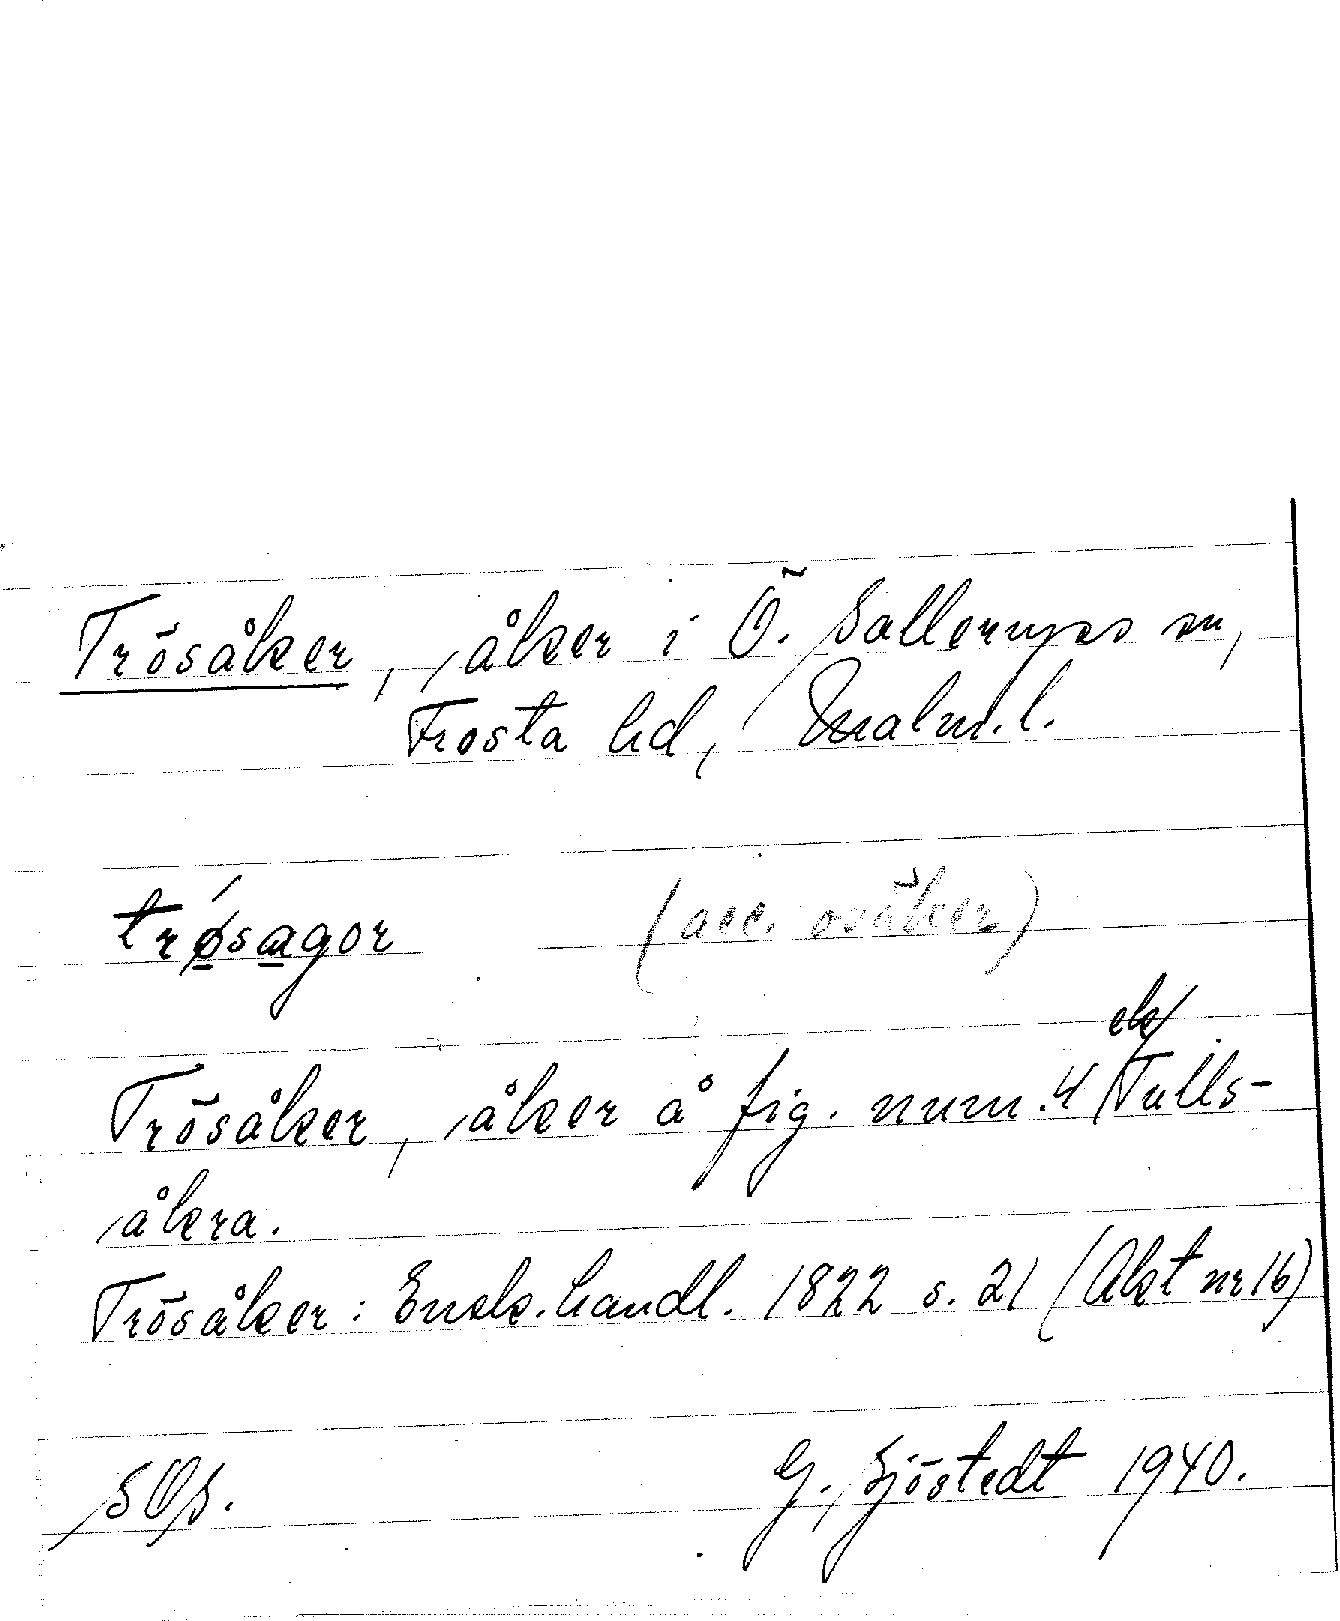 Trösåker, åker i Ö. Sallerups sn,
Frosta hd, Malm. l.
trǿ̱sa̱gor (acc. osäker)
ek/
Trösåker, åker å fig. num. 4 Tulls-
åkra.
Trösåker: Ensk. handl. 1822 s. 21 (Akt nr 16)
SOS. G. Sjöstedt 1940.